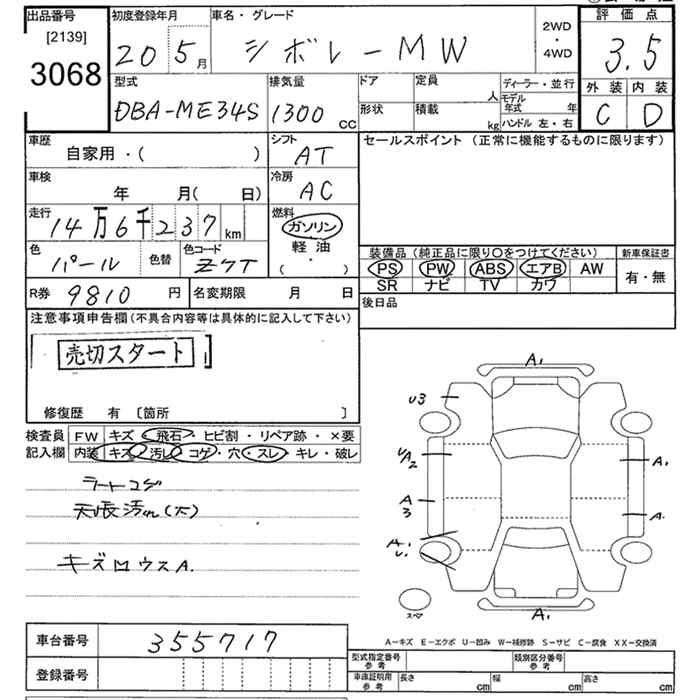 出品番号 初度登録年月 車名・グレード 2WD・4WD 評価点
[2139]
3068 20 5月 シボレーMW 3.5
型式 排気量 ドア 定員 人 ディーラー・並行 外装 内装
DBA-ME34S 1300cc 形状 積載 kg モデル年式 年 ハンドル 左・右 C D
車歴 シフト セールスポイント (正常に機能するものに限ります)
自家用・( ) AT
車検 冷房
年 月( 日) AC
走行 燃料
14万6千237km ガソリン
軽油
色 色替 色コード 装備品(純正品に限り〇をつけてください) 新車保証書
パール ZYT (・) PS PW ABS エアB AW 有・無
SR ナビ TV カワ
R券 9810円 名変期限 月 日 後日品
注意事項申告欄(不具合内容等は具体的に記入して下さい)
売切スタート
修復歴 有 〔箇所 〕
検査員 FW キズ・飛石・ヒビ割・リペア跡・×要
記入欄 内装 キズ・汚し・コゲ・穴・スレ・キレ・破レ
シートコゲ
天張汚れ(大)
キズロウスA.
A1
U3
UA2 A1
A3 A.
A1
U1
スペア
A1
A−キズ E−エクボ U−凹み W−補修跡 S−サビ C−腐食 XX−交換済
車台番号 355717 型式指定番号 参考 類別区分番号 参考
登録番号 車庫証明用 参考 長さ cm 幅 cm 高さ cm